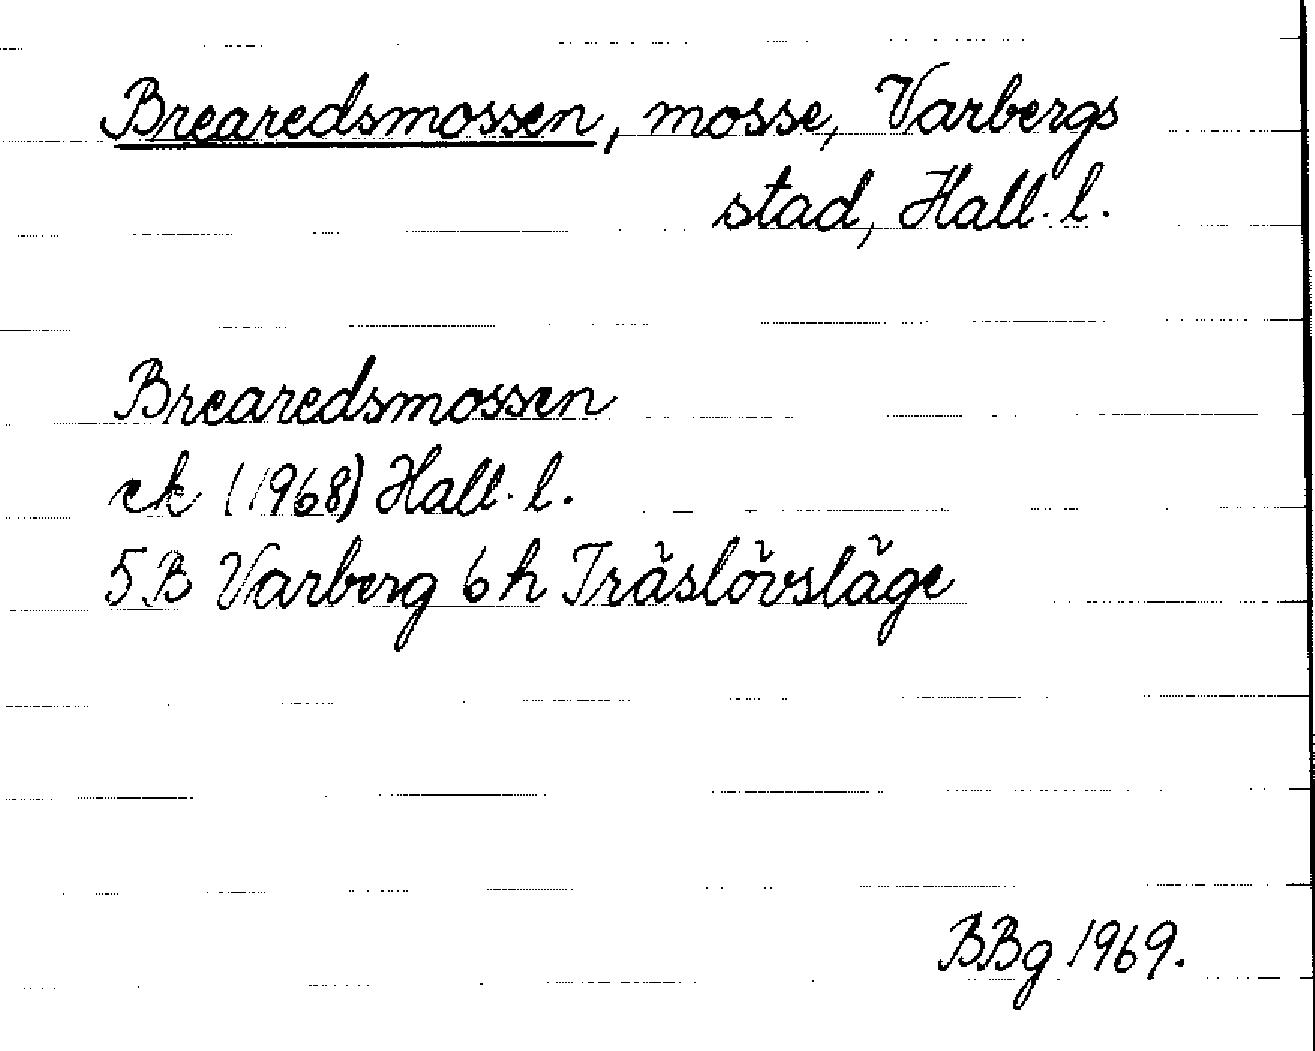 Brearedsmossen, mosse, Varbergs
stad, Hall. l.
Brearedsmossen
ek (1968) Hall. l.
5B Varberg 6h Träslövsläge
BBg 1969.